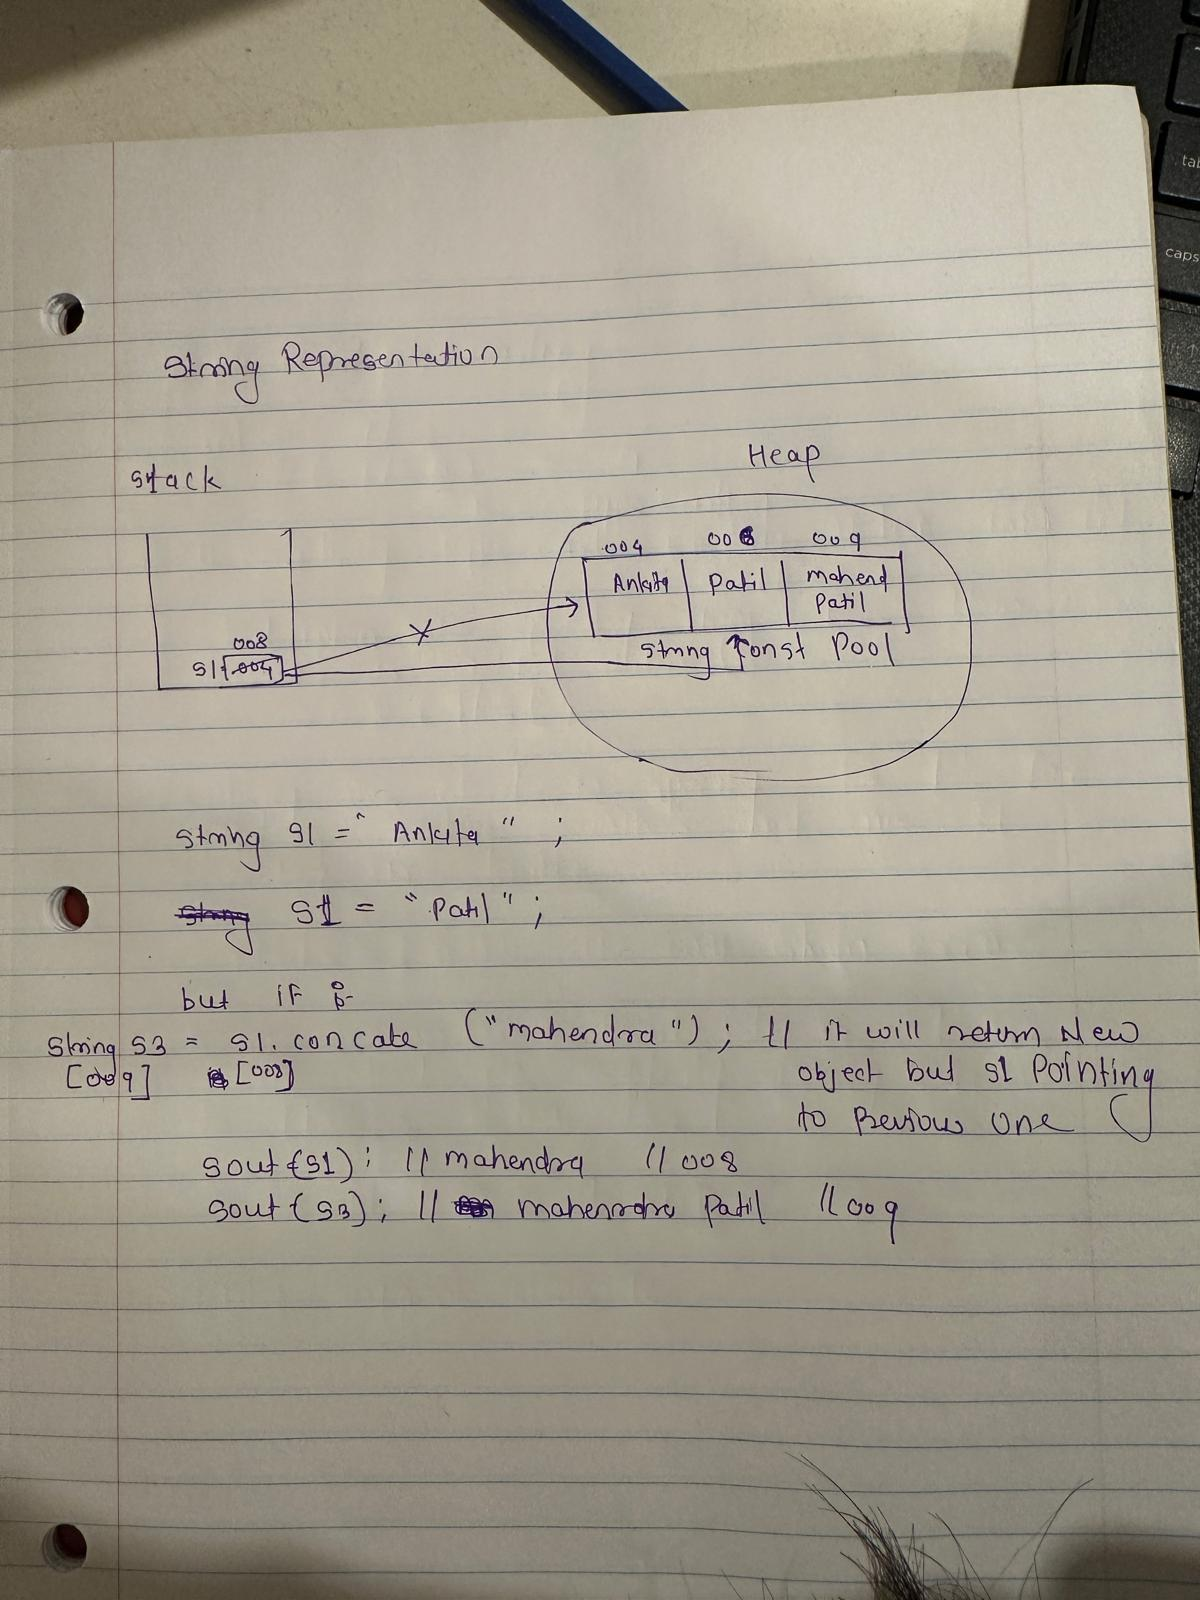 String Representation
Stack
Heap
004 008 009
Ankita Patil mahend
Patil
String Const Pool
008
S1 004
String S1 = "Ankita" ;
String S1 = "Patil" ;
but if
String S3 = S1.concate ("mahendra") ; // it will return New
[009] [008] object but s1 Pointing
to Previous one
Sout (S1) ; // mahendra // 008
Sout (S3) ; // mahenrdra Patil // 009
tab
caps